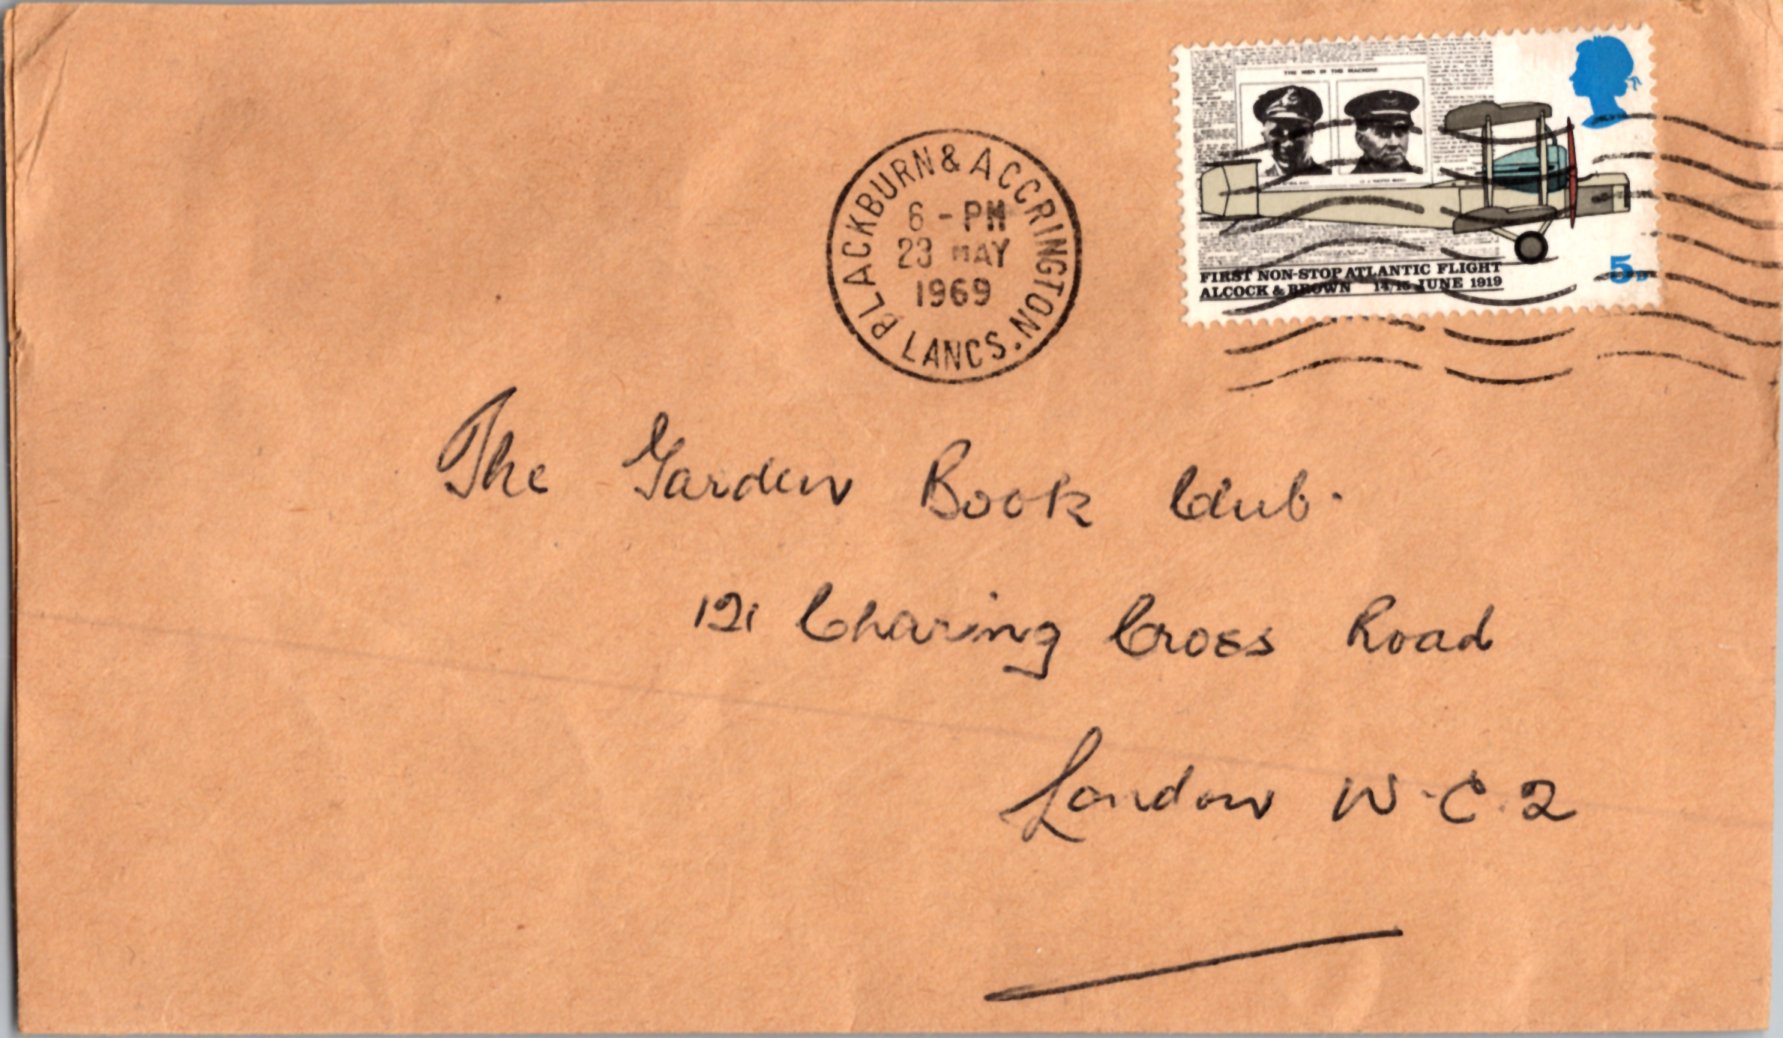 BLACKBURN & ACCRINGTON
6 - PM
23 MAY
1969
LANCS.
THE MEN IN THE MACHINE
FIRST NON-STOP ATLANTIC FLIGHT
ALCOCK & BROWN 14/15 JUNE 1919
5D
The Garden Book Club.
121 Charing Cross Road
London W.C.2